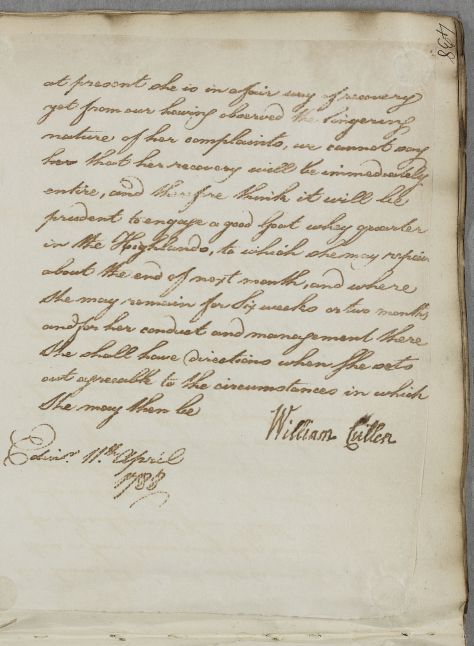 498
at present she is in a fair way of recovery
yet from our having observed the lingering
nature of her complaints, we cannot say
her that her recovery will be immediately
entire, and therefore think it will be
prudent to engage a good Goat whey quarter
in the Highlands, to which she may repair
about the end of next month, and where
she may remain for Six weeks or two months
and for her conduct and management there
She shall have directions when She sets
out agreeable to the circumstances in which
She may then be
William Cullen
Edinr. 11.th April
1788